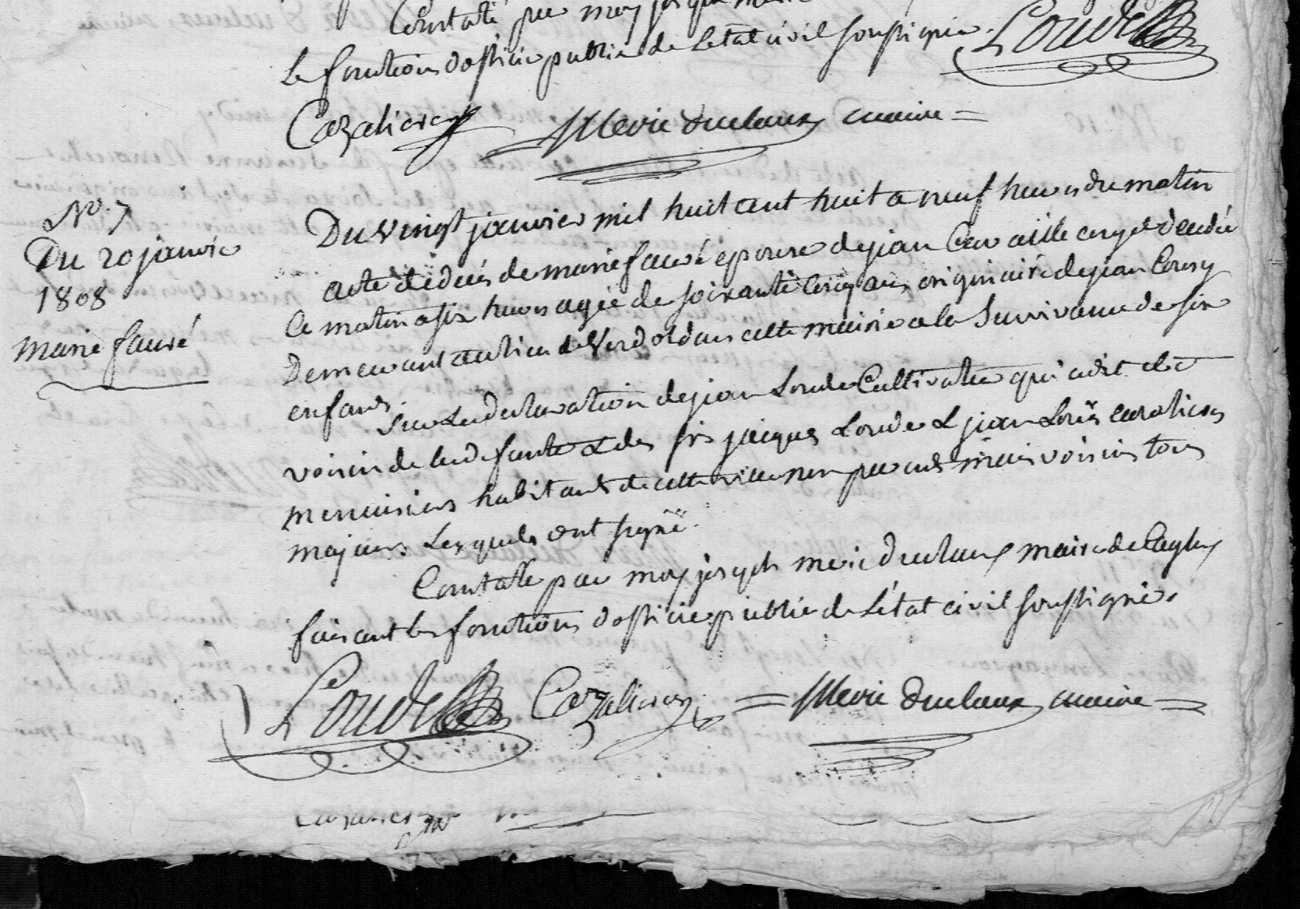 Constaté par moy joseph
le fonctions d'officie public de L'etat civil soussigné. Loude
Cazalieres Meric Duclaux maire =
N.° 7
Du 20 janvie
1808
marie fauré
Du vingt janvier mil huit cent huit a neuf heures du matin
acte de décés de marie fauré epouse de jean
Ce matin a six heures agée de soixante cinq ans originaire de jean
Demeurant au lieu de dans cette mairie a la Survivance de six
enfans.
Sur La declaration de jean Loude Cultivateur qui a dit etre
voisin de la defunte & des srs jacques Loude & jean Loüis cazalieres
menuisiers habitants de cette ville non parents mais voisins tous
majeurs Lesquels ont signé.
Constaté par moy joseph meric Duclaux maire de
faisant les fonctions d'officie public de L'état civil soussigné.
Loude Cazalieres = Meric Duclaux maire =